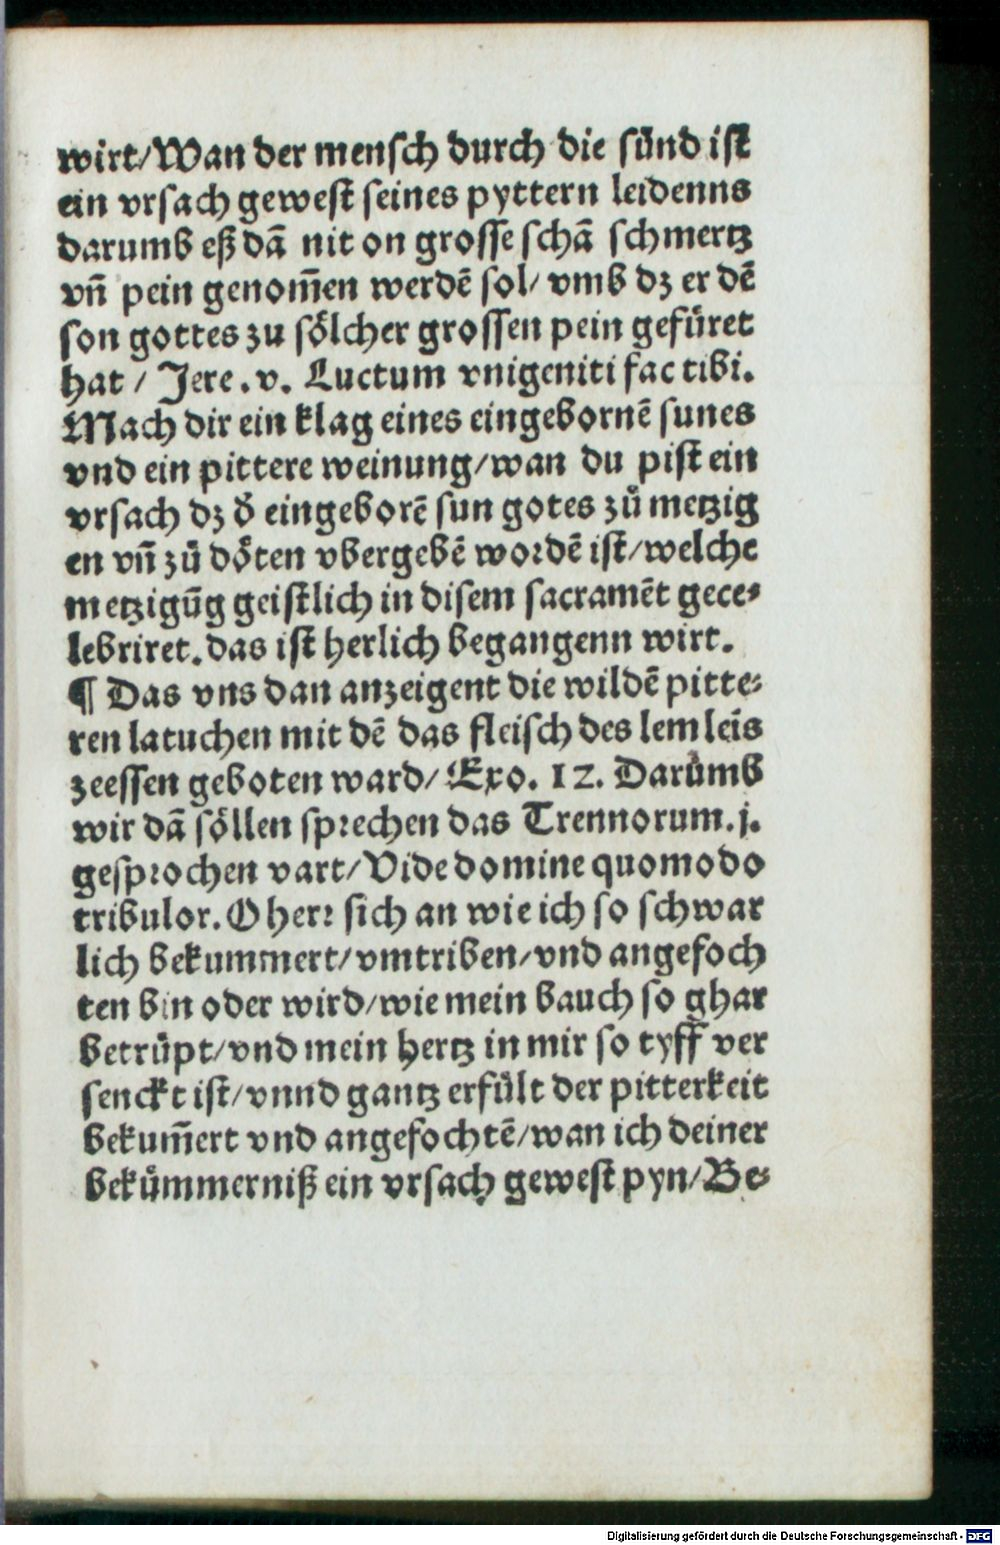 wirt/Wan der mensch durch die sünd ist
ein vrsach gewest seines pyttern leidenns
darumb eß dā nit on grosse schā schmertz
vn̄ pein genom̄en werdē sol/ vmb dz er dē
son gottes zu sölcher grossen pein gefüret
hat / Jere. v. Luctum vnigeniti fac tibi.
Mach dir ein klag eines eingebornē sunes
vnd ein pittere weinung/wan du pist ein
vrsach dz d̄ eingeborē sun gotes zů metzig
en vn̄ zů döten vbergebē wordē ist/welche
metzigūg geistlich in disem sacramēt gece-
lebriret. das ist herlich begangenn wirt.
¶ Das vns dan anzeigent die wildē pitte-
ren latuchen mit dē das fleisch des lemleīs
zeessen geboten ward/ Exo. 12. Darůmb
wir dā söllen sprechen das Trennorum. j.
gesprochen vart/ Vide domine quomodo
tribulor. O herr sich an wie ich so schwar
lich bekummert/vmtriben/vnd angefoch
ten bin oder wird/wie mein bauch so ghar
betrüpt/vnd mein hertz in mir so tyff ver
senckt ist/vnnd gantz erfült der pitterkeit
bekum̄ert vnd angefochtē/wan ich deiner
bekümmerniß ein vrsach gewest pyn/Be-
Digitalisierung gefördert durch die Deutsche Forschungsgemeinschaft - DFG